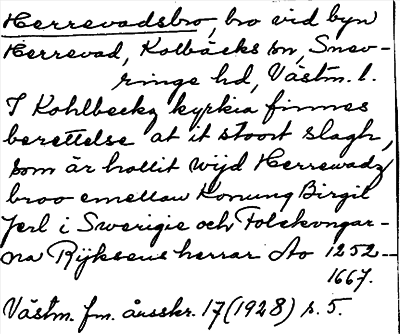 Herrevadsbro, bro vid byn
Herrevad, Kolbäcks sn, Snev-
ringe hd, Västm. l.
I Kohlbeckz kyrkia finnes
berettelse at it stoort slagh,
som är hollit wijd Herrewadz
broo emellan Konung Birgil
Jerl i Swerigie och Folckongar-
na Rijksens herrar Ao 1252--
1667.
Västm. fm. årsskr. 17 (1928) s. 5.